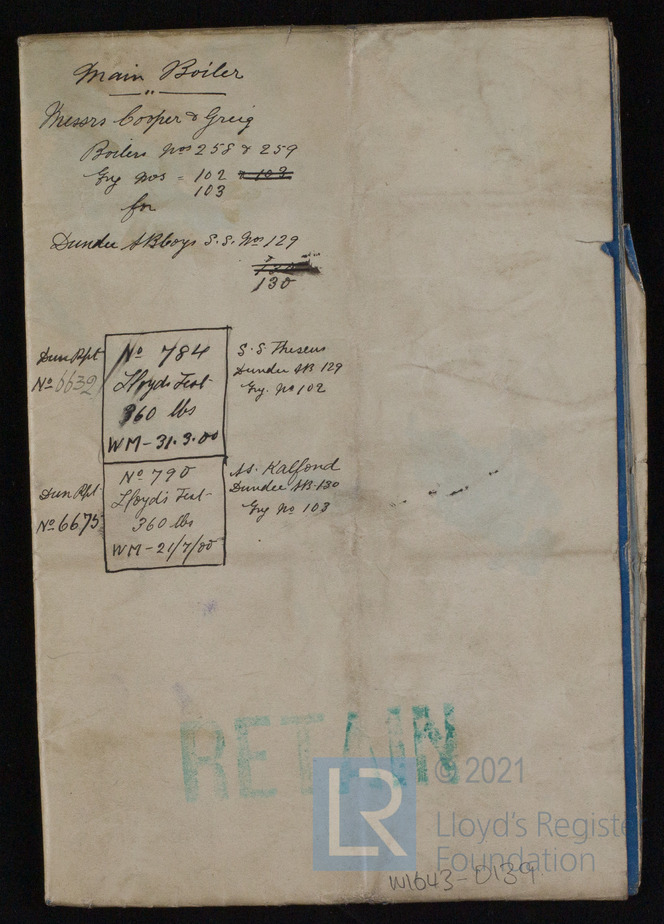 Main Boiler
Messrs Cooper & Greig
Boilers Nos 258 & 259
Eng Nos = 102
103
for
Dundee SBCoys S.S. Nos 129
130
Dun Rpt
No 6632
No 784
Lloyds Test
360 lbs
WM - 31.3.00
S.S Theseus
Dundee SB 129
Eng. No 102
Dun Rpt
No 6675
No 790
Lloyd's Test
360 lbs
WM - 21/7/00
SS. Kalfond
Dundee SB. 130
Eng No 103
RETAIN
LR
© 2021
Lloyd's Registe
Foundation
W1643-0139